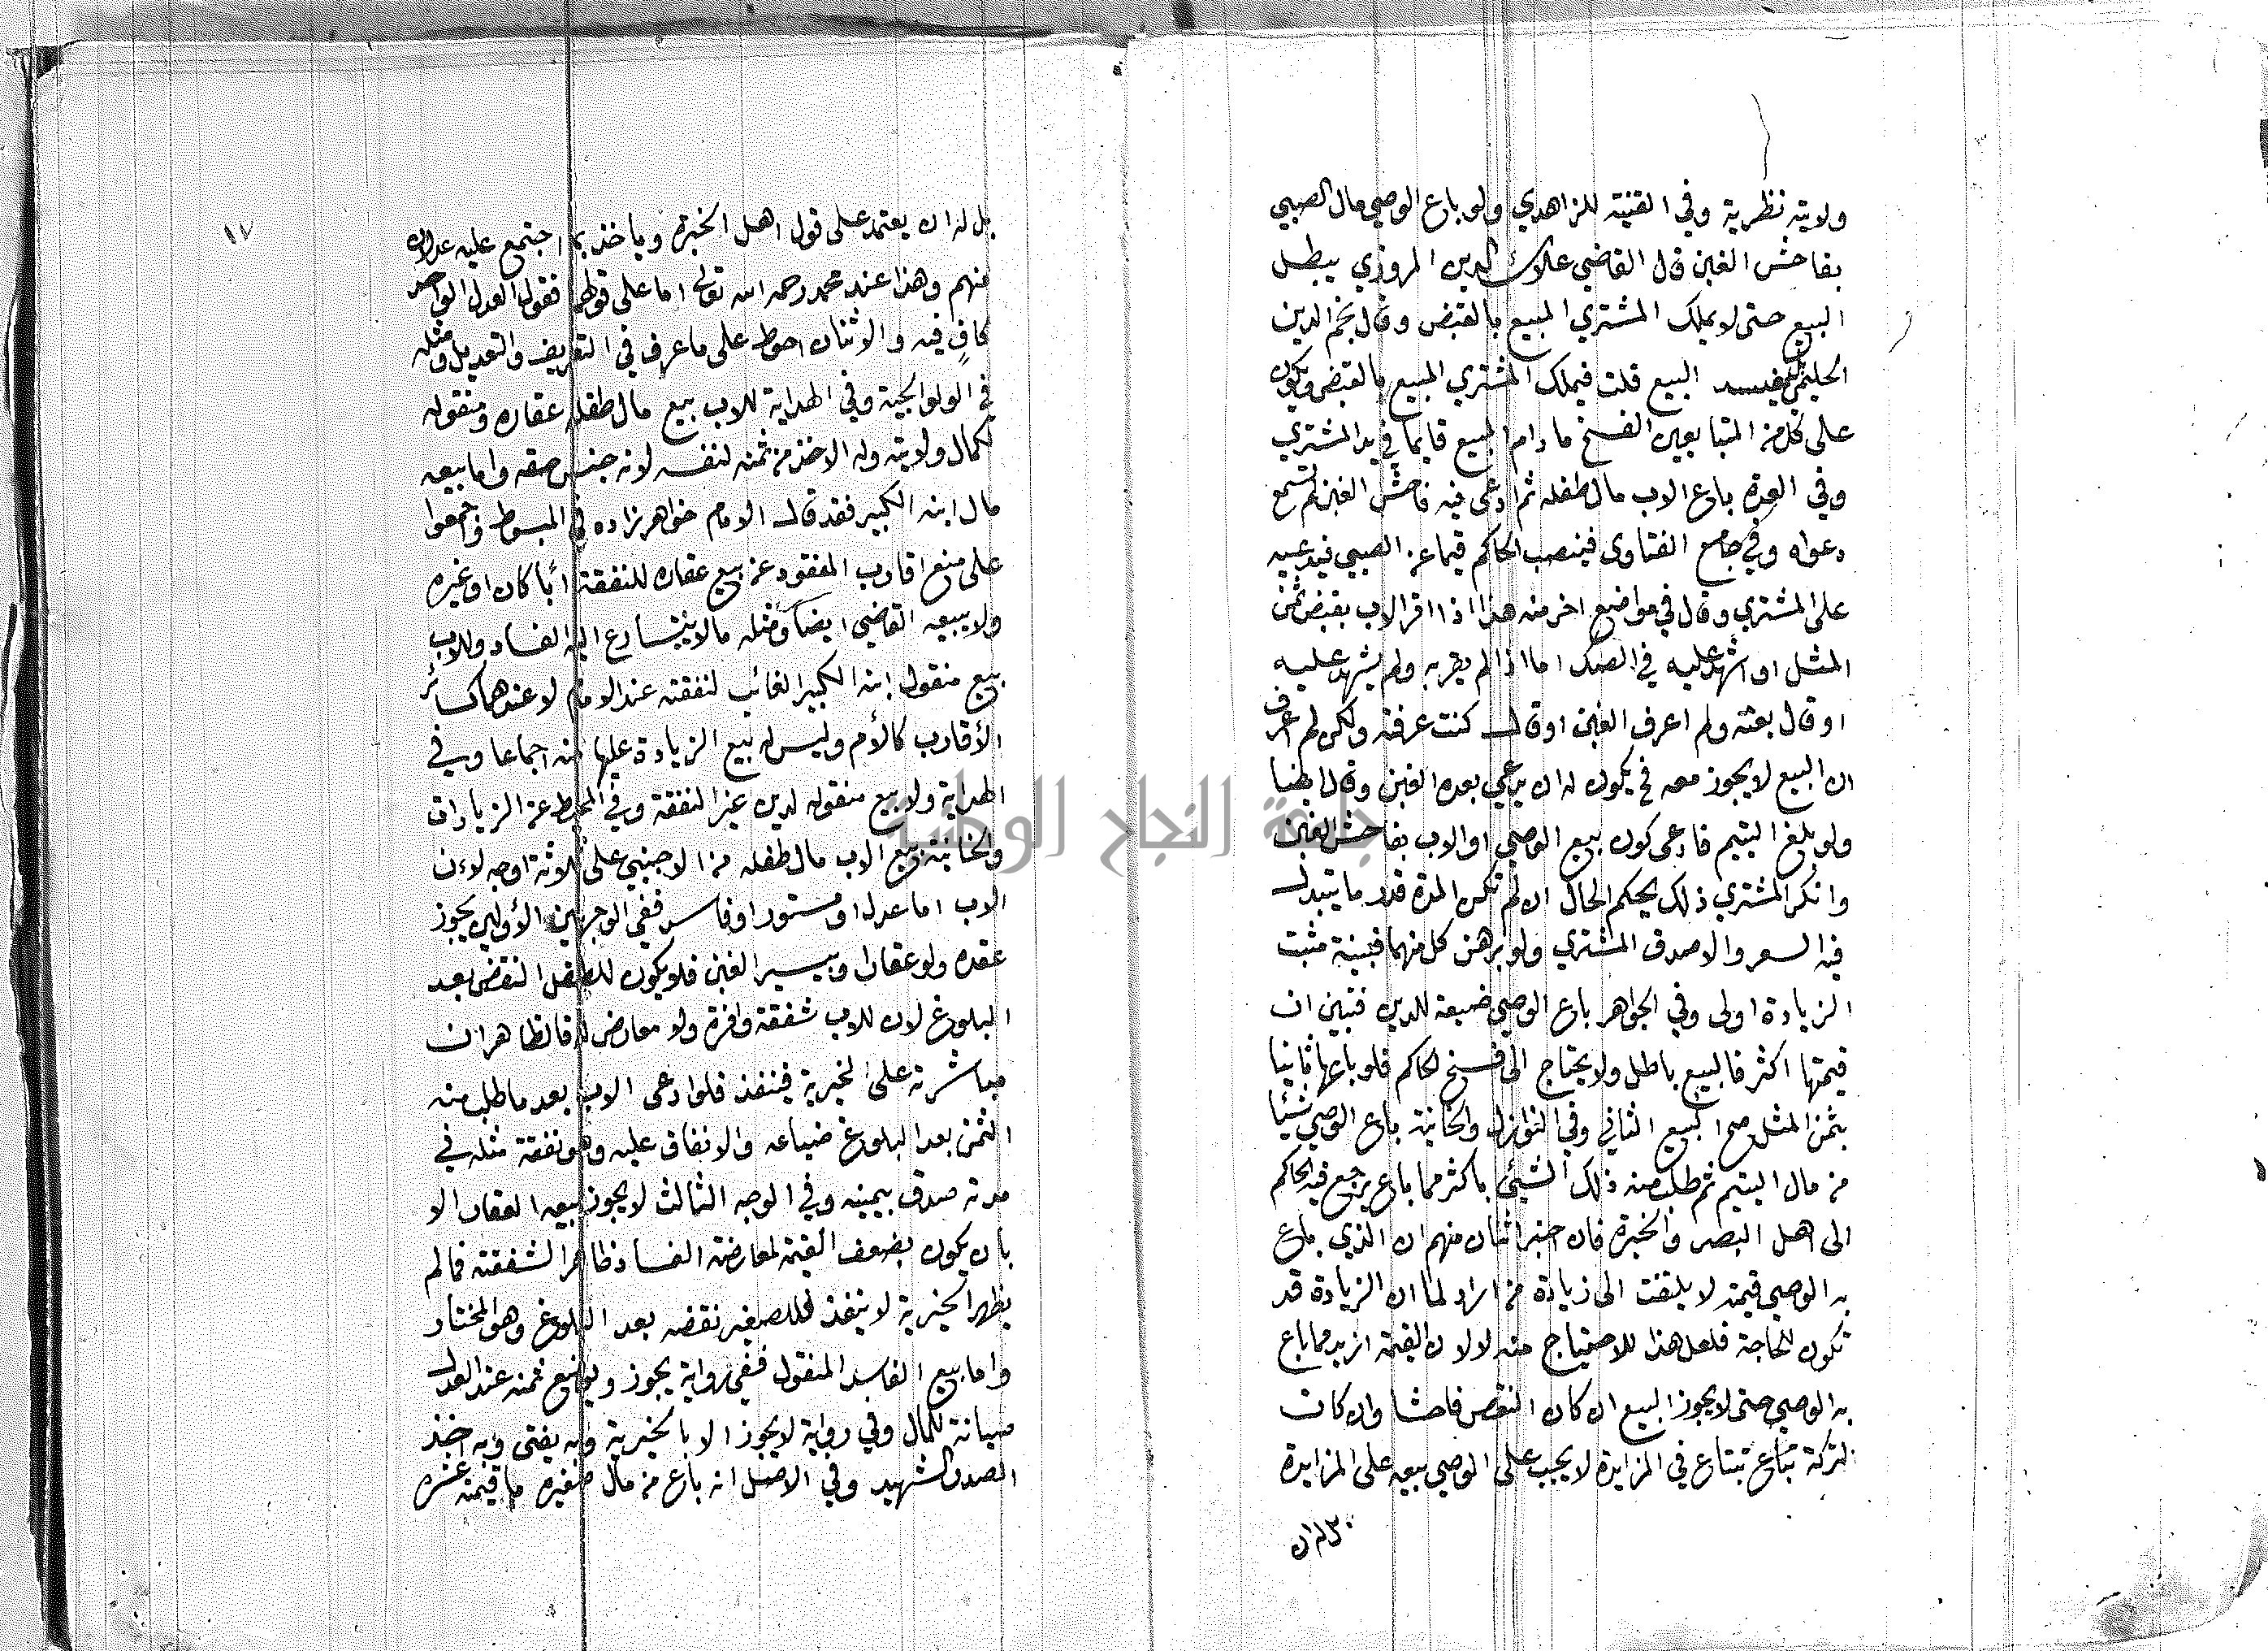 ولايته نظرية وفي القنية للزاهدي ولو باع الوصي مال الصبي
بفاحش الغبن قال القاضي علاء الدين المروزي يبطل
البيع حتى لا يملك المشتري المبيع بالقبض وقال نجم الدين
الحليمي يفسد البيع قلت فيملك المشتري المبيع بالقبض ويكون
على كل من المتبايعين الفسخ ما دام المبيع قايما في يد المشتري
وفي العدة باع الاب مال طفله ثم ادعى فيه فاحش الغبن لم تسمع
دعواه وفي جامع الفتاوى فينصب الحاكم قيما عن الصبي فيدعيه
على المشتري وقال في مواضع اخر منه هذا اذا اقر الاب بقبض ثمن
المثل او اشهد عليه في الصك اما اذا لم يقر به ولم يشهد عليه
او قال بعته ولم اعرف الغبن او قال كنت عرفته ولكن لم اعرف
ان البيع لا يجوز معه فح يكون له ان يدعي بعده الغبن وقال ايضا
ولو بلغ اليتيم فادعى كون بيع الوصي او الاب بفاحش الغبن
وانكر المشتري ذلك يحكم الحال ان لم تكن المدة قدر ما يتبدل
فيه السعر والا صدق المشتري ولو برهن كل منهما فبينة مثبت
الزيادة اولى وفي الجواهر باع الوصي ضيعة للدين فتبين ان
قيمتها اكثر فالبيع باطل ولا يحتاج الى فسخ الحاكم فلو باعها ثانيا
بثمن المثل صح البيع الثاني وفي النوازل والخانية باع الوصي شيئا
من مال اليتيم ثم طلب منه ذلك الشيئ باكثر مما باع يرجع فيه الحاكم
الى اهل البصر والخبرة فان اخبر اثنان منهم ان الذي باع
به الوصي قيمته لا يلتفت الى زيادة من اراد لما ان الزيادة قد
تكون للحاجة فلعل هذا للاحتياج منه لا لان القيمة ازيد مما باع
به الوصي حتى لا يجوز البيع ان كان النقص فاحشا وان كانت
التركة تباع تبتاع في المزايدة لا يجب على الوصي بيعه على المزايدة
بل له ان
١٧
بل له ان يعتمد على قول اهل الخبرة وياخذ بما اجتمع عليه عدلان
منهم وهذا عند محمد رحمه الله تعالى اما على قولهما فقول العدل الواحد
كافٍ فيه والاثنان احوط على ما عرف في التعريف والتعديل ومثله
في الولوالجية وفي الهداية للاب بيع مال طفله عقاره ومنقوله
لكمال ولايته وله الاخذ من ثمنه لنفسه لانه جنس حقه واما بيعه
مال ابنه الكبير فقد قال الامام خواهرزاده في المبسوط واجمعوا
على منع اقارب المفقود عن بيع عقاره للنفقة أبا كان او غيره
ولا يبيعه القاضي ايضا ومثله مالا يتسارع اليه الفساد وللاب
بيع منقول ابنه الكبير الغائب لنفقته عند الامام لا عندهما كسائر
الأقارب كالأم وليس له بيع الزيادة عليها منه اجماعا وفي
الهداية ولا بيع منقوله لدين غير النفقة وفي المحيط عن الزيادات
والخانية وبيع الاب مال طفله من الاجنبي على ثلاثة اوجه لان
الاب اما عدل او مستور او فاسق ففي الوجهين الأولين يجوز
عقده ولو عقارا وبيسير الغبن فلا يكون للطفل النقض بعد
البلوغ لان للاب شفقة وافرة ولا معارض له فالظاهر ان
مباشرته على الخيرية فينفذ فلو ادعى الاب بعد ما طلب منه
الثمن بعد البلوغ ضياعه والانفاق عليه وهو نفقة مثله في
مدته صدق بيمينه وفي الوجه الثالث لا يجوز بيعه العقار الا
بان يكون بضعف القيمة لمعارضة الفساد ظاهر الشفقة فما لم
يظهر الخيرية لا ينفذ فللصغير نقضه بعد البلوغ وهو المختار
واما بيع الفاسد المنقول ففي رواية يجوز ويوضع ثمنه عند العدل
صيانة للمال وفي رواية لا يجوز الا بالخيرية وبه يفتى وبه اخذ
الصدر الشهيد وفي الاصل انه باع من مال صغيره ما قيمته عشرة
جامعة النجاح الوطنية